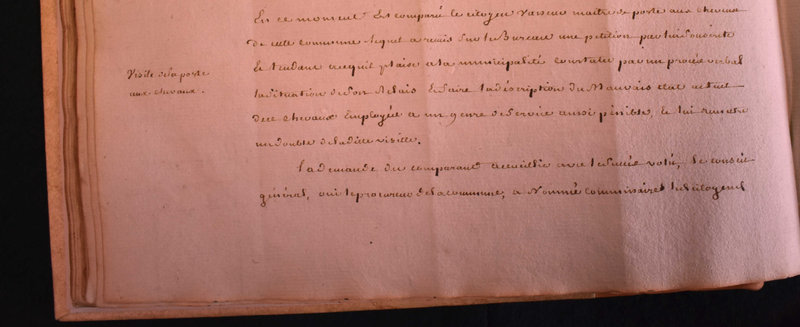 En ce moment Est comparu le citoyen vasseur maitre de poste aux chevaux
de cette commune lequel a remis sur le Bureau une petition par lui souscrite
Et tendante acequil plaise ala municipalité constater par un procès verbal
Visite de la poste
aux chevaux.
la situation de son Relais Et faire la description du Mauvais état actuel
de ce chevaux Employés a un genre de service aussi pénible, Et lui remettre
un double de la dite visitte.
La demande du comparant accueillie avec le succès voté, le conseil
général, oui le procureur de la commune, a Nommé Commissaires les citoyens